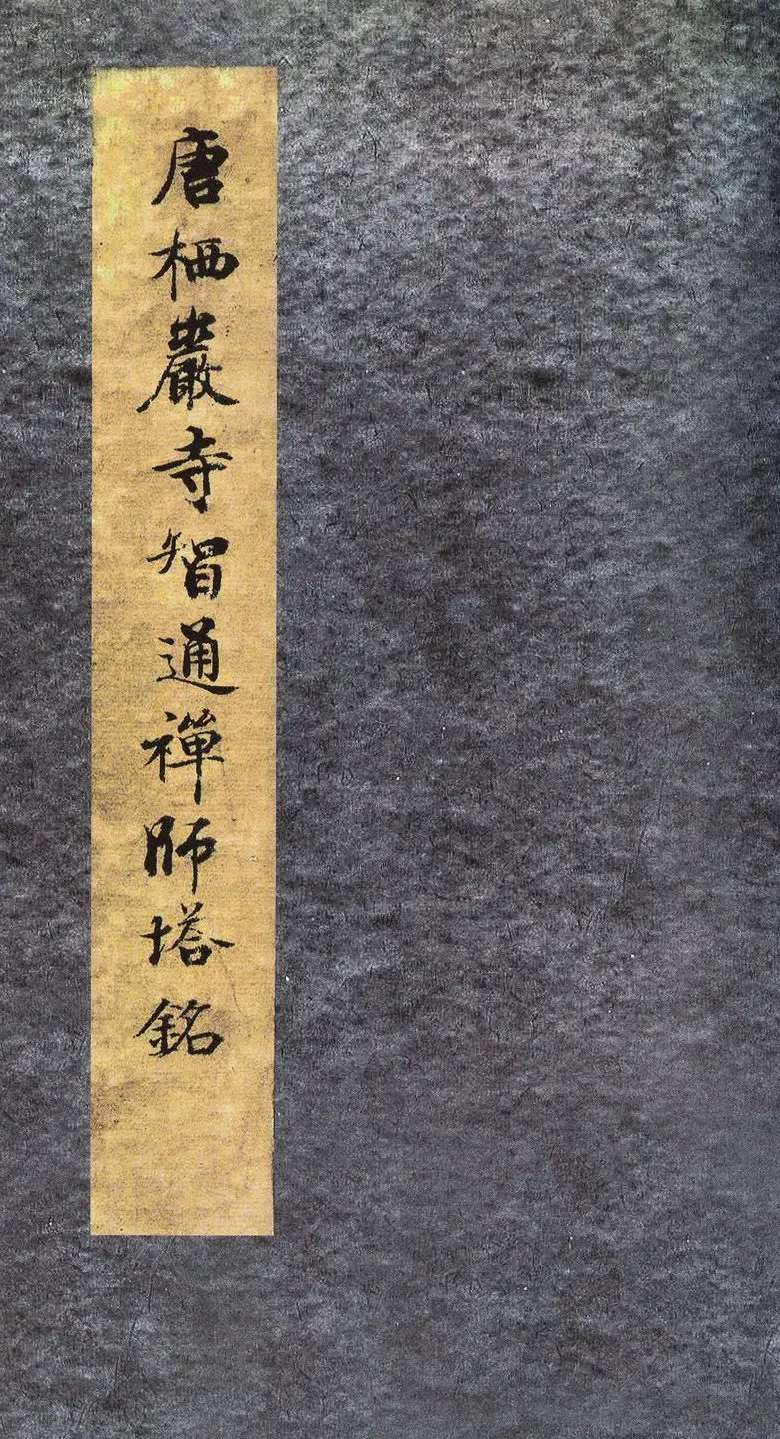 唐栖巖寺智通禪師塔銘